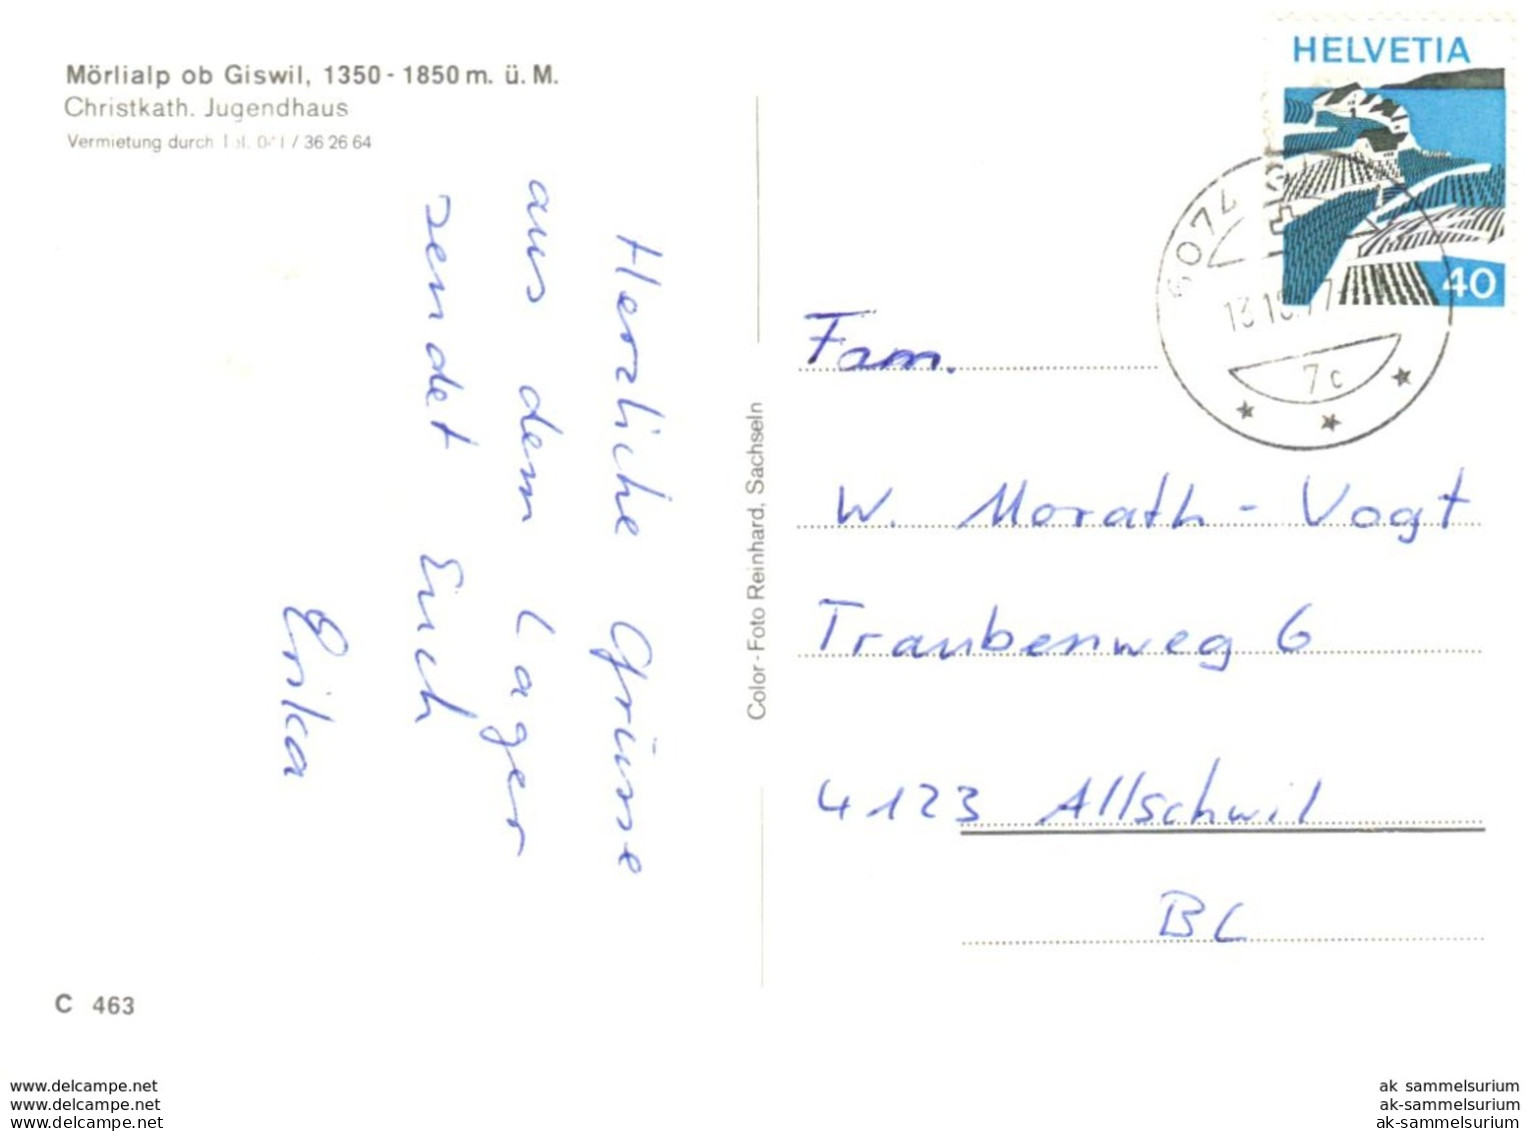 Mörlialp ob Giswil, 1350 - 1850 m. ü. M.
Christkath. Jugendhaus
Vermietung durch Tel. 041 / 36 26 64
Herzliche Grüsse
aus dem Lager
sendet Euch
Erika
Color - Foto Reinhard, Sachseln
HELVETIA
40
6074
7c
Fam.
W. Morath - Vogt
Traubenweg 6
4123 Allschwil
BL
C 463
www.delcampe.net
www.delcampe.net
www.delcampe.net
ak_sammelsurium
ak-sammelsurium
ak-sammelsurium